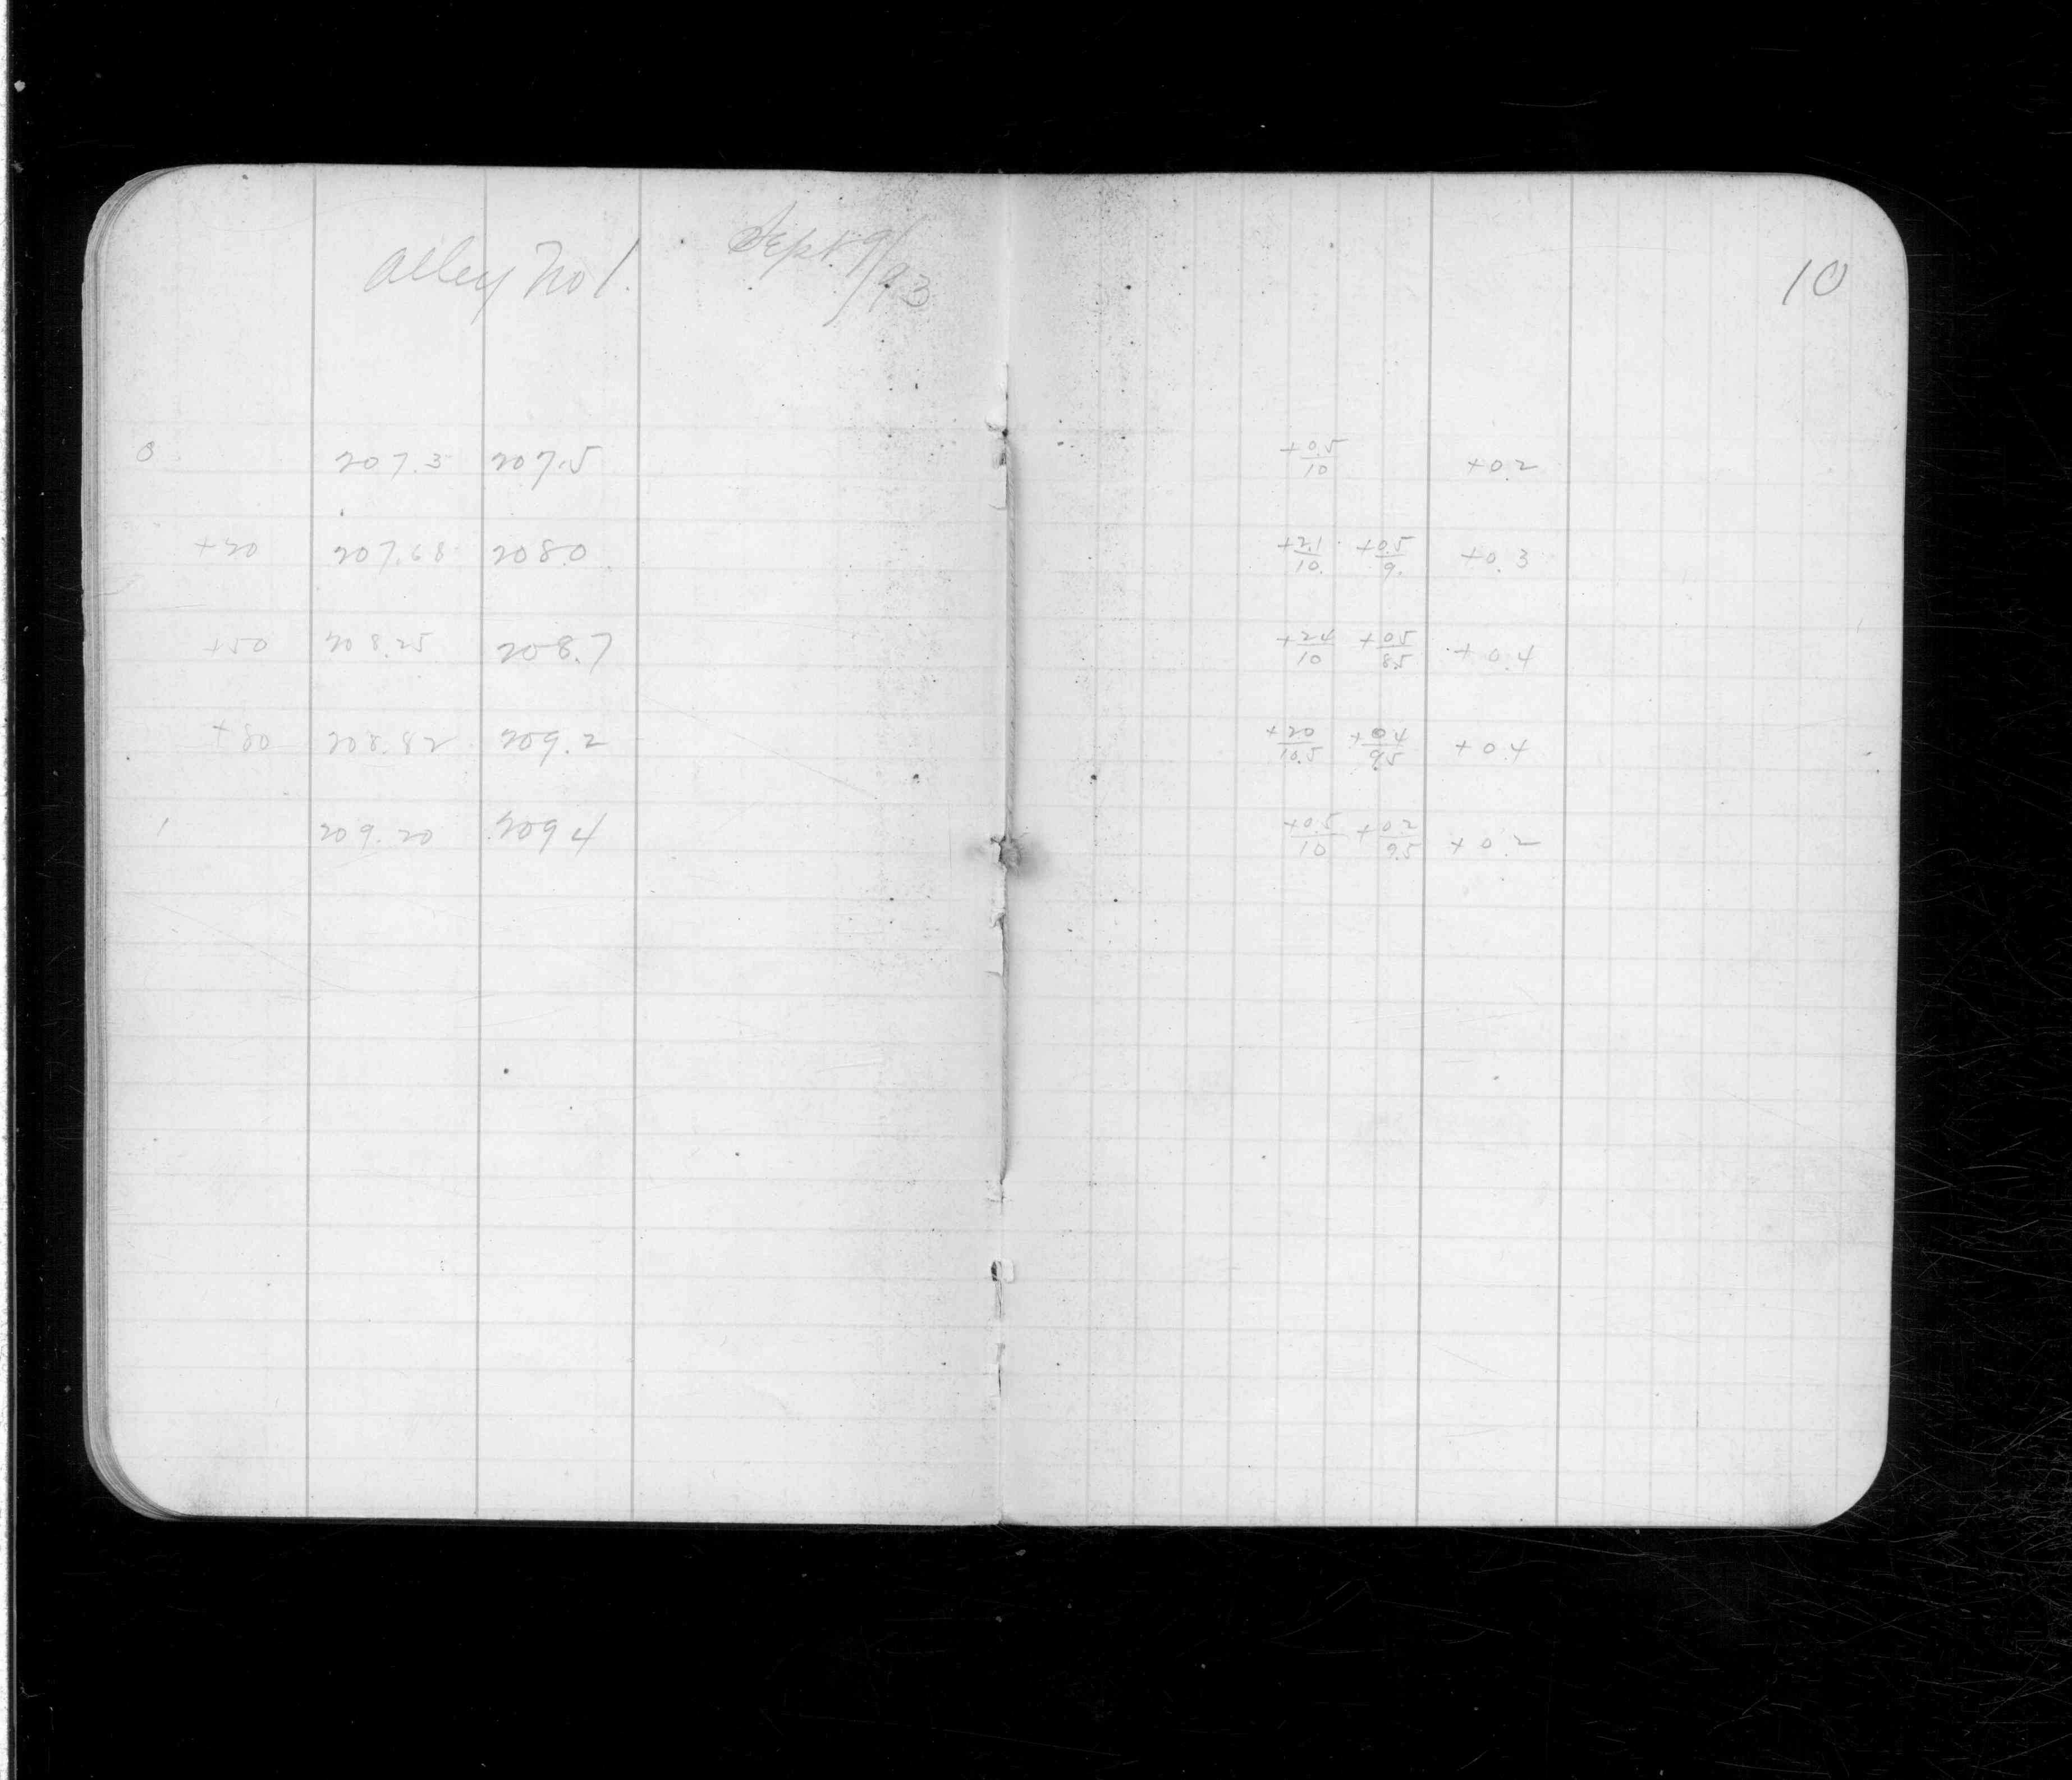 Alley No 1. Sept. 9/93
10
0 207.3 207.5 +0.5/10 +0.2
+20 207.68 208.0 +2.1/10. +0.5/9. +0.3
+50 208.25 208.7 +2.4/10 +0.5/8.5 +0.4
+80 208.82 209.2 +2.0/10.5 +0.4/9.5 +0.4
1 209.20 209.4 +0.5/10 +0.2/9.5 +0.2